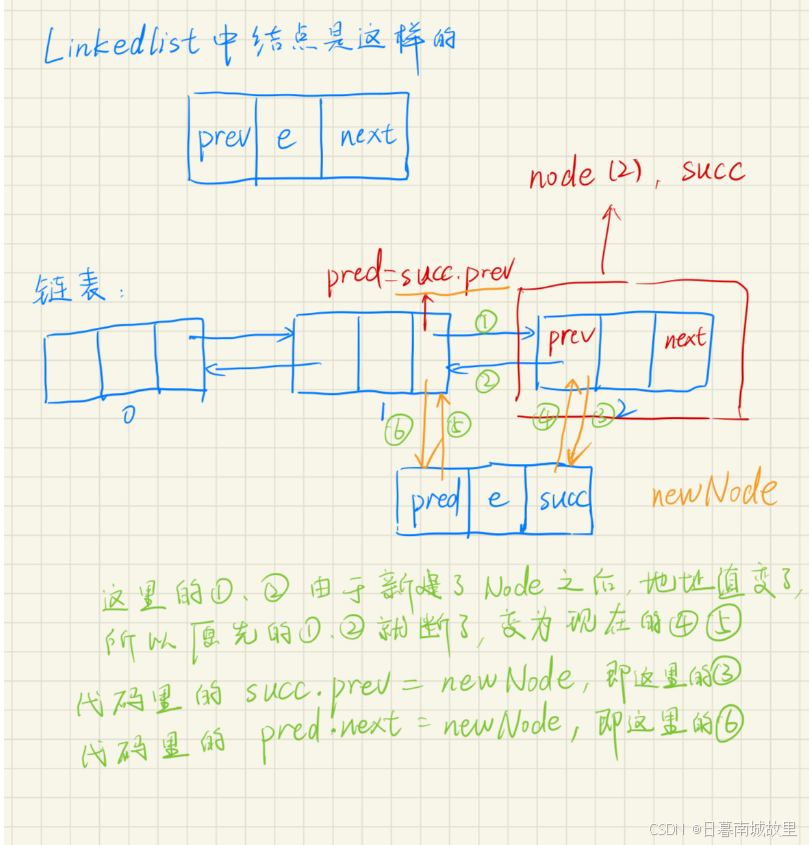 Linkedlist中结点是这样的
prev e next
node (2), succ
pred=succ.prev
链表:
① prev next
②
0 1 2
⑥ ⑤ ④ ③
pred e succ newNode
这里的①、②由于新建了Node之后,地址值变了,
所以原先的①、②就断了,变为现在的④⑤
代码里的 succ.prev = newNode, 即这里的③
代码里的 pred.next = newNode, 即这里的⑥
CSDN @日暮南城故里